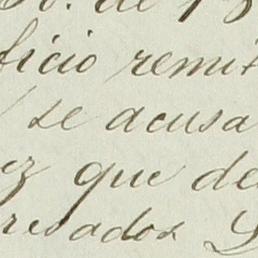 de
ficio remit
se acusa
ez que de
resados